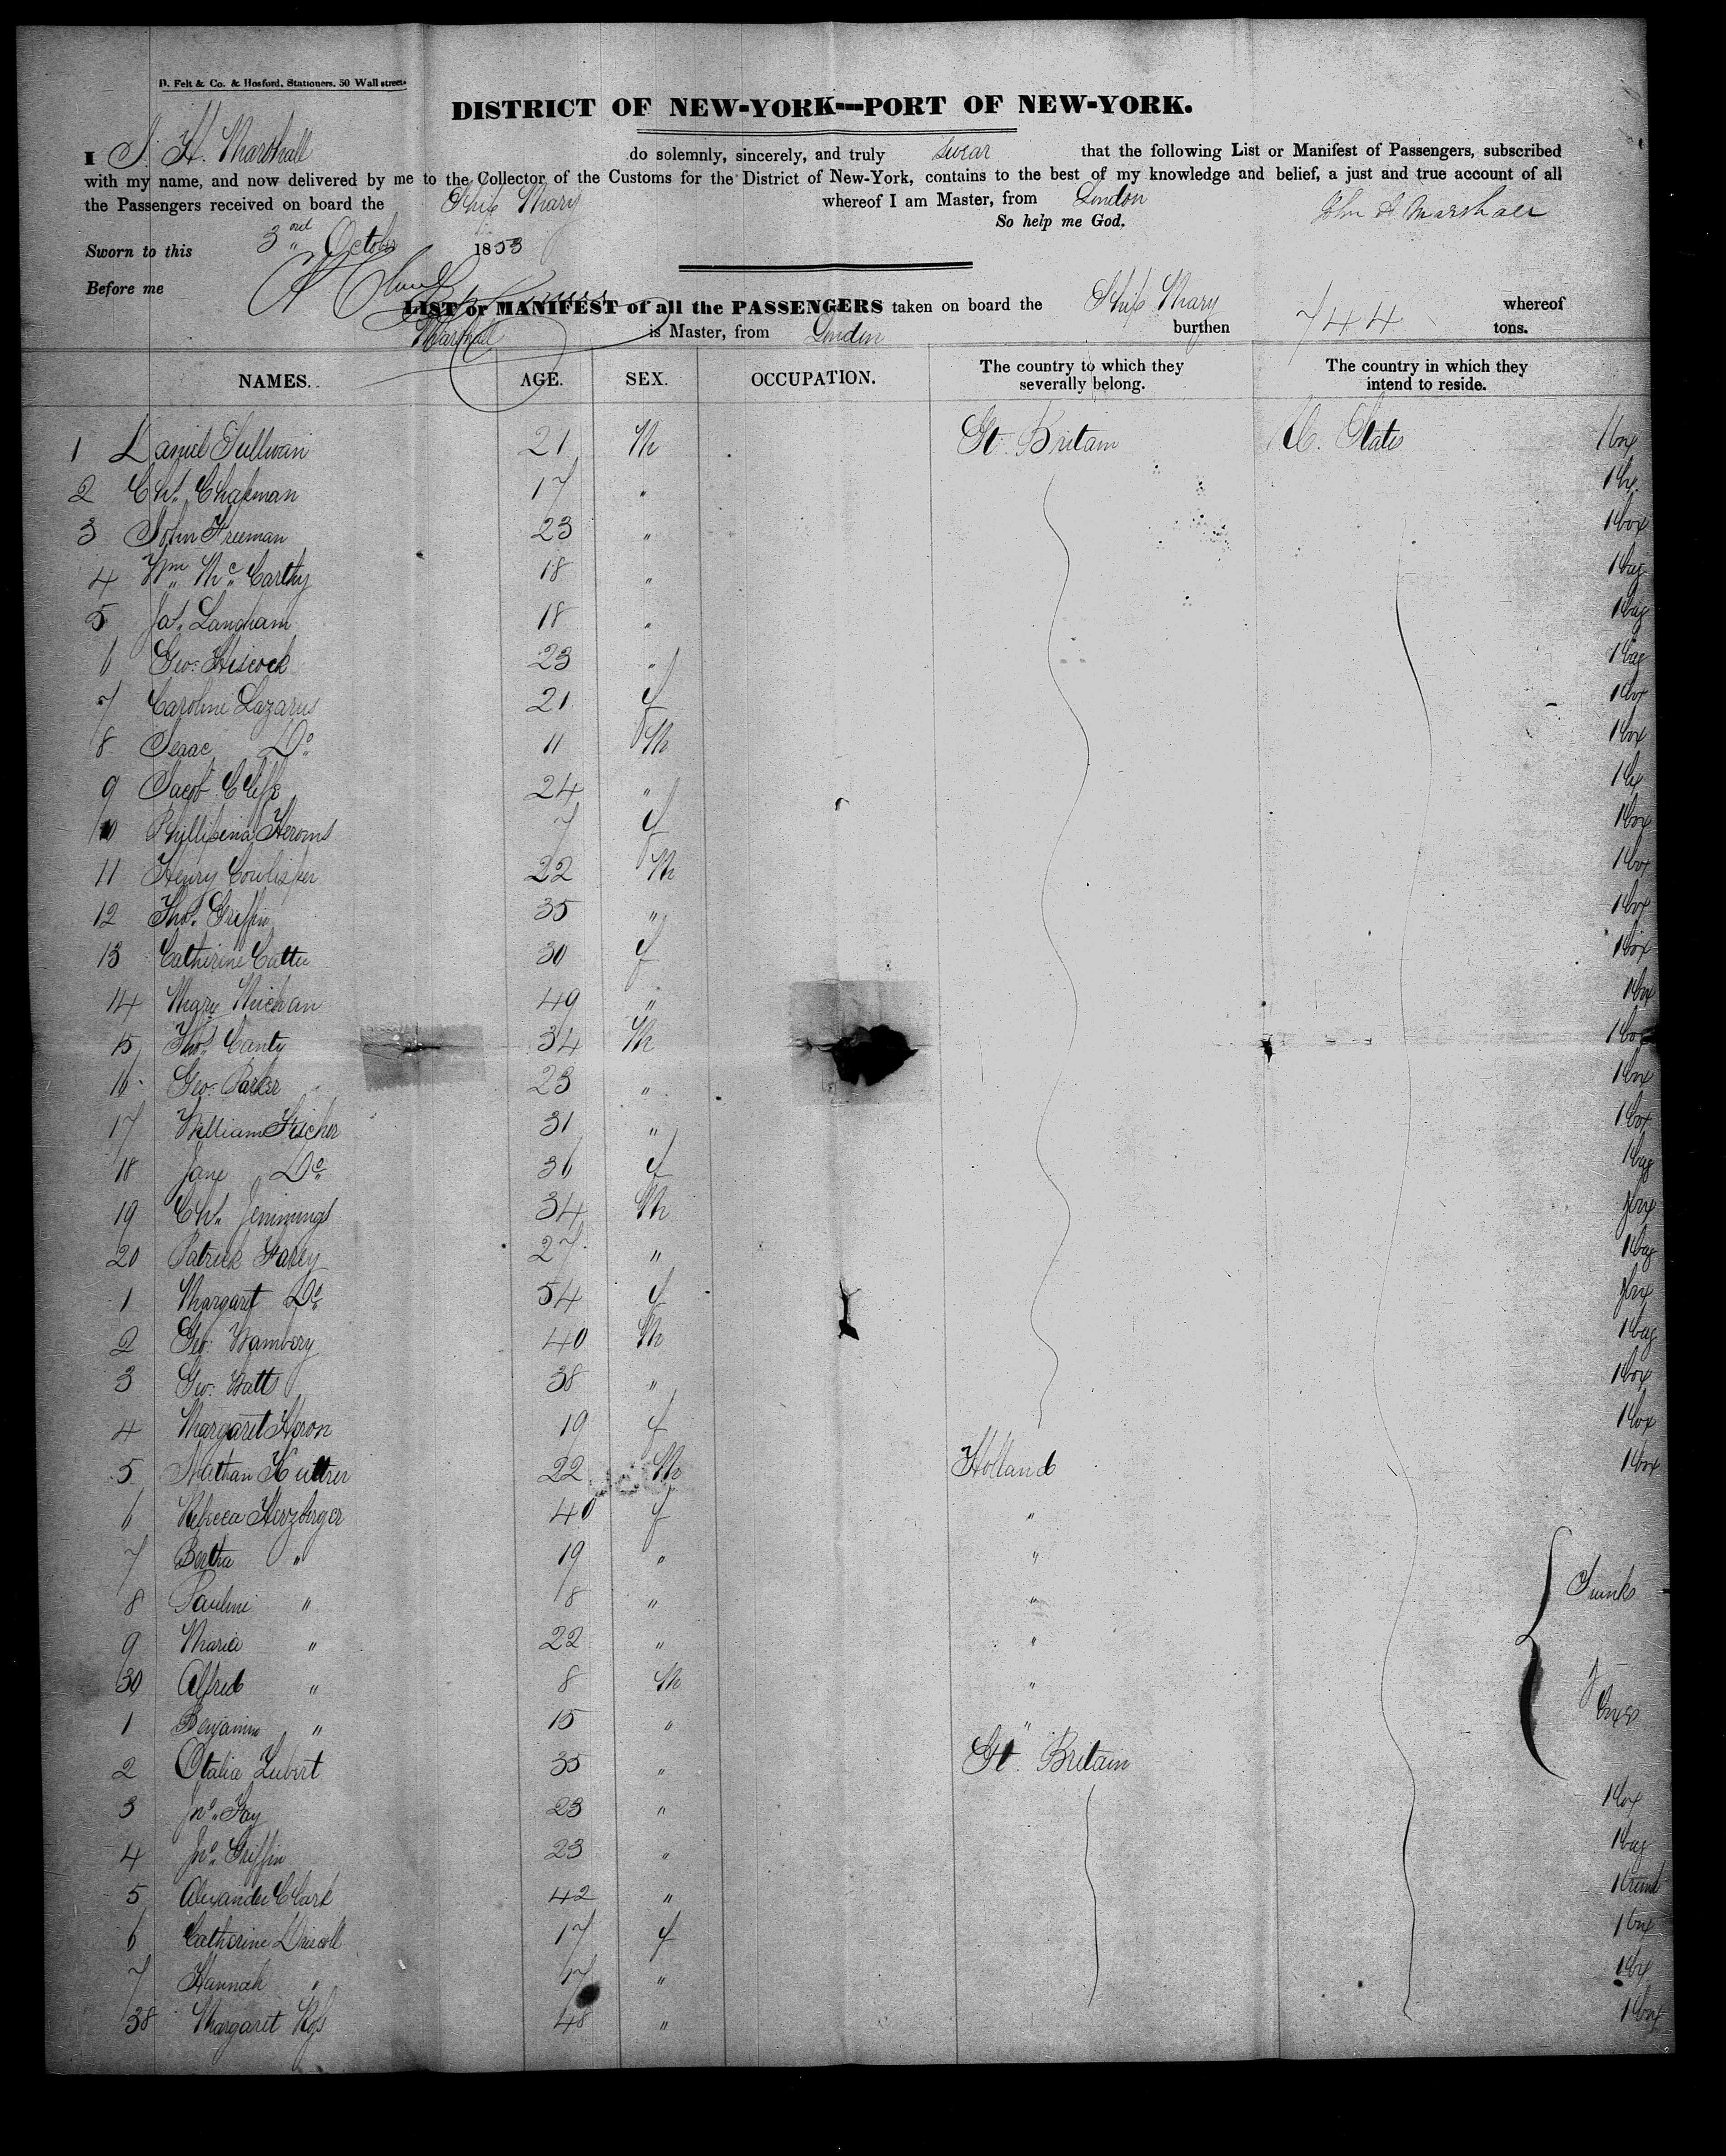 D. Felt & Co. & Hosford, Stationers, 50 Wall street.
DISTRICT OF NEW-YORK---PORT OF NEW-YORK.
I J. H. Marshall do solemnly, sincerely, and truly swear that the following List or Manifest of Passengers, subscribed
with my name, and now delivered by me to the Collector of the Customs for the District of New-York, contains to the best of my knowledge and belief, a just and true account of all
the Passengers received on board the Ship Mary whereof I am Master, from London
So help me God. John H Marshall
Sworn to this 3rd October 1853
Before me
LIST or MANIFEST of all the PASSENGERS taken on board the Ship Mary whereof
Marshall is Master, from London burthen 744 tons.
NAMES. AGE. SEX. OCCUPATION. The country to which they severally belong. The country in which they intend to reside.
1 Daniel Sullivan 21 M Gt. Britain U. States 1 box
2 Chs. Chapman 17 " 1 bx.
3 John Freeman 23 " 1 box
4 Wm Mc Carthy 18 " 1 bag
5 Jas. Langham 18 " 1 bag
6 Geo. Hiscock 23 " 1 bag
7 Caroline Lazarus 21 f 1 box
8 Isaac Do 11 M 1 box
9 Jacob Cliffe 24 " 1 bx
10 Phillipenia 7 f 1 box
11 Henry 22 M 1 box
12 Thos. Griffin 35 " 1 box
13 Catherine 30 f 1 box
14 Mary 49 " 1 box
15 Thos. Canty 34 M 1 box
16 Geo. Parker 23 " 1 box
17 William Fischer 31 " 1 box
18 Jane Do 36 f 1 bag
19 Chs. Jennings 34 M 1 box
20 Patrick 27 " 1 bag
1 Margaret Do 54 f 1 box
2 Geo. 40 M 1 bag
3 Geo. Batts 38 " 1 box
4 Margaret Heron 19 f 1 box
5 Nathan 22 M Holland 1 box
6 Rebecca Herzberger 40 f "
7 Bertha " 19 " "
8 Pauline " 8 " " Trunks
9 Maria " 22 " "
30 Alfred " 8 M " boxes
1 Benjamin " 15 " "
2 Otalia Lubert 35 " Gt. Britain
3 Jno. Fay 23 " 1 box
4 Jno. Griffin 23 " 1 bag
5 Alexander Clark 42 " 1 trunk
6 Catherine Driscoll 17 f 1 box
7 Hannah " 17 " 1 bx
38 Margaret 48 " 1 box